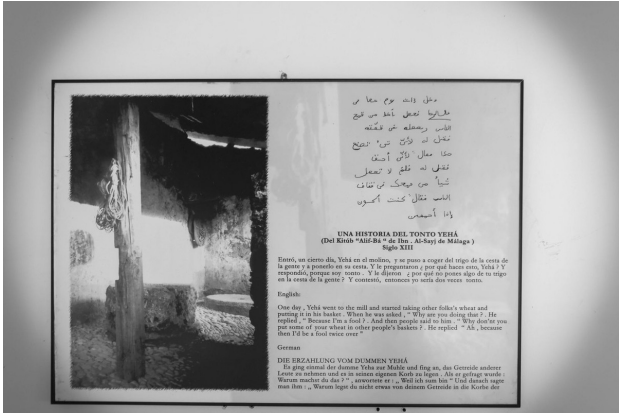 دخل ذات يوم جحا في
الناس
فقيل له
فقال
الناس فقال كنت أكون
إذا
UNA HISTORIA DEL TONTO YEHÁ
(Del Kitúb "Alif-Bá " de Ibn . Al-Sayj de Málaga )
Siglo XIII
Entró, un cierto día, Yehá en el molino, y se puso a coger del trigo de la cesta de
la gente y a ponerlo en su cesta. Y le preguntaron ¿ por qué haces esto, Yehá ? Y
respondió, porque soy tonto . Y le dijeron ¿ por qué no pones algo de tu trigo
en la cesta de la gente ? Y contestó, entonces yo sería dos veces tonto.
English:
One day , Yehá went to the mill and started taking other folks's wheat and
putting it in his basket . When he was asked , " Why are you doing that ? . He
replied , " Because I'm a fool ? . And then people said to him . " Why don'at you
put some of your wheat in other people's baskets ? . He replied " Ah , because
then I'd be a fool twice over "
German
DIE ERZAHLUNG VOM DUMMEN YEHÁ
Es ging einmal der dumme Yeha zur Muhle und fing an, das Getreide anderer
Leute zu nehmen und es in seinen eigenen Korb zu legen . Als er gefragt wurde :
Warum machst du das ? " , anwortete er : „ Weil ich tum bin " Und danach sagte
man ihm : „ Warum legst du nicht etwas von deinem Getreide in die Korbe der